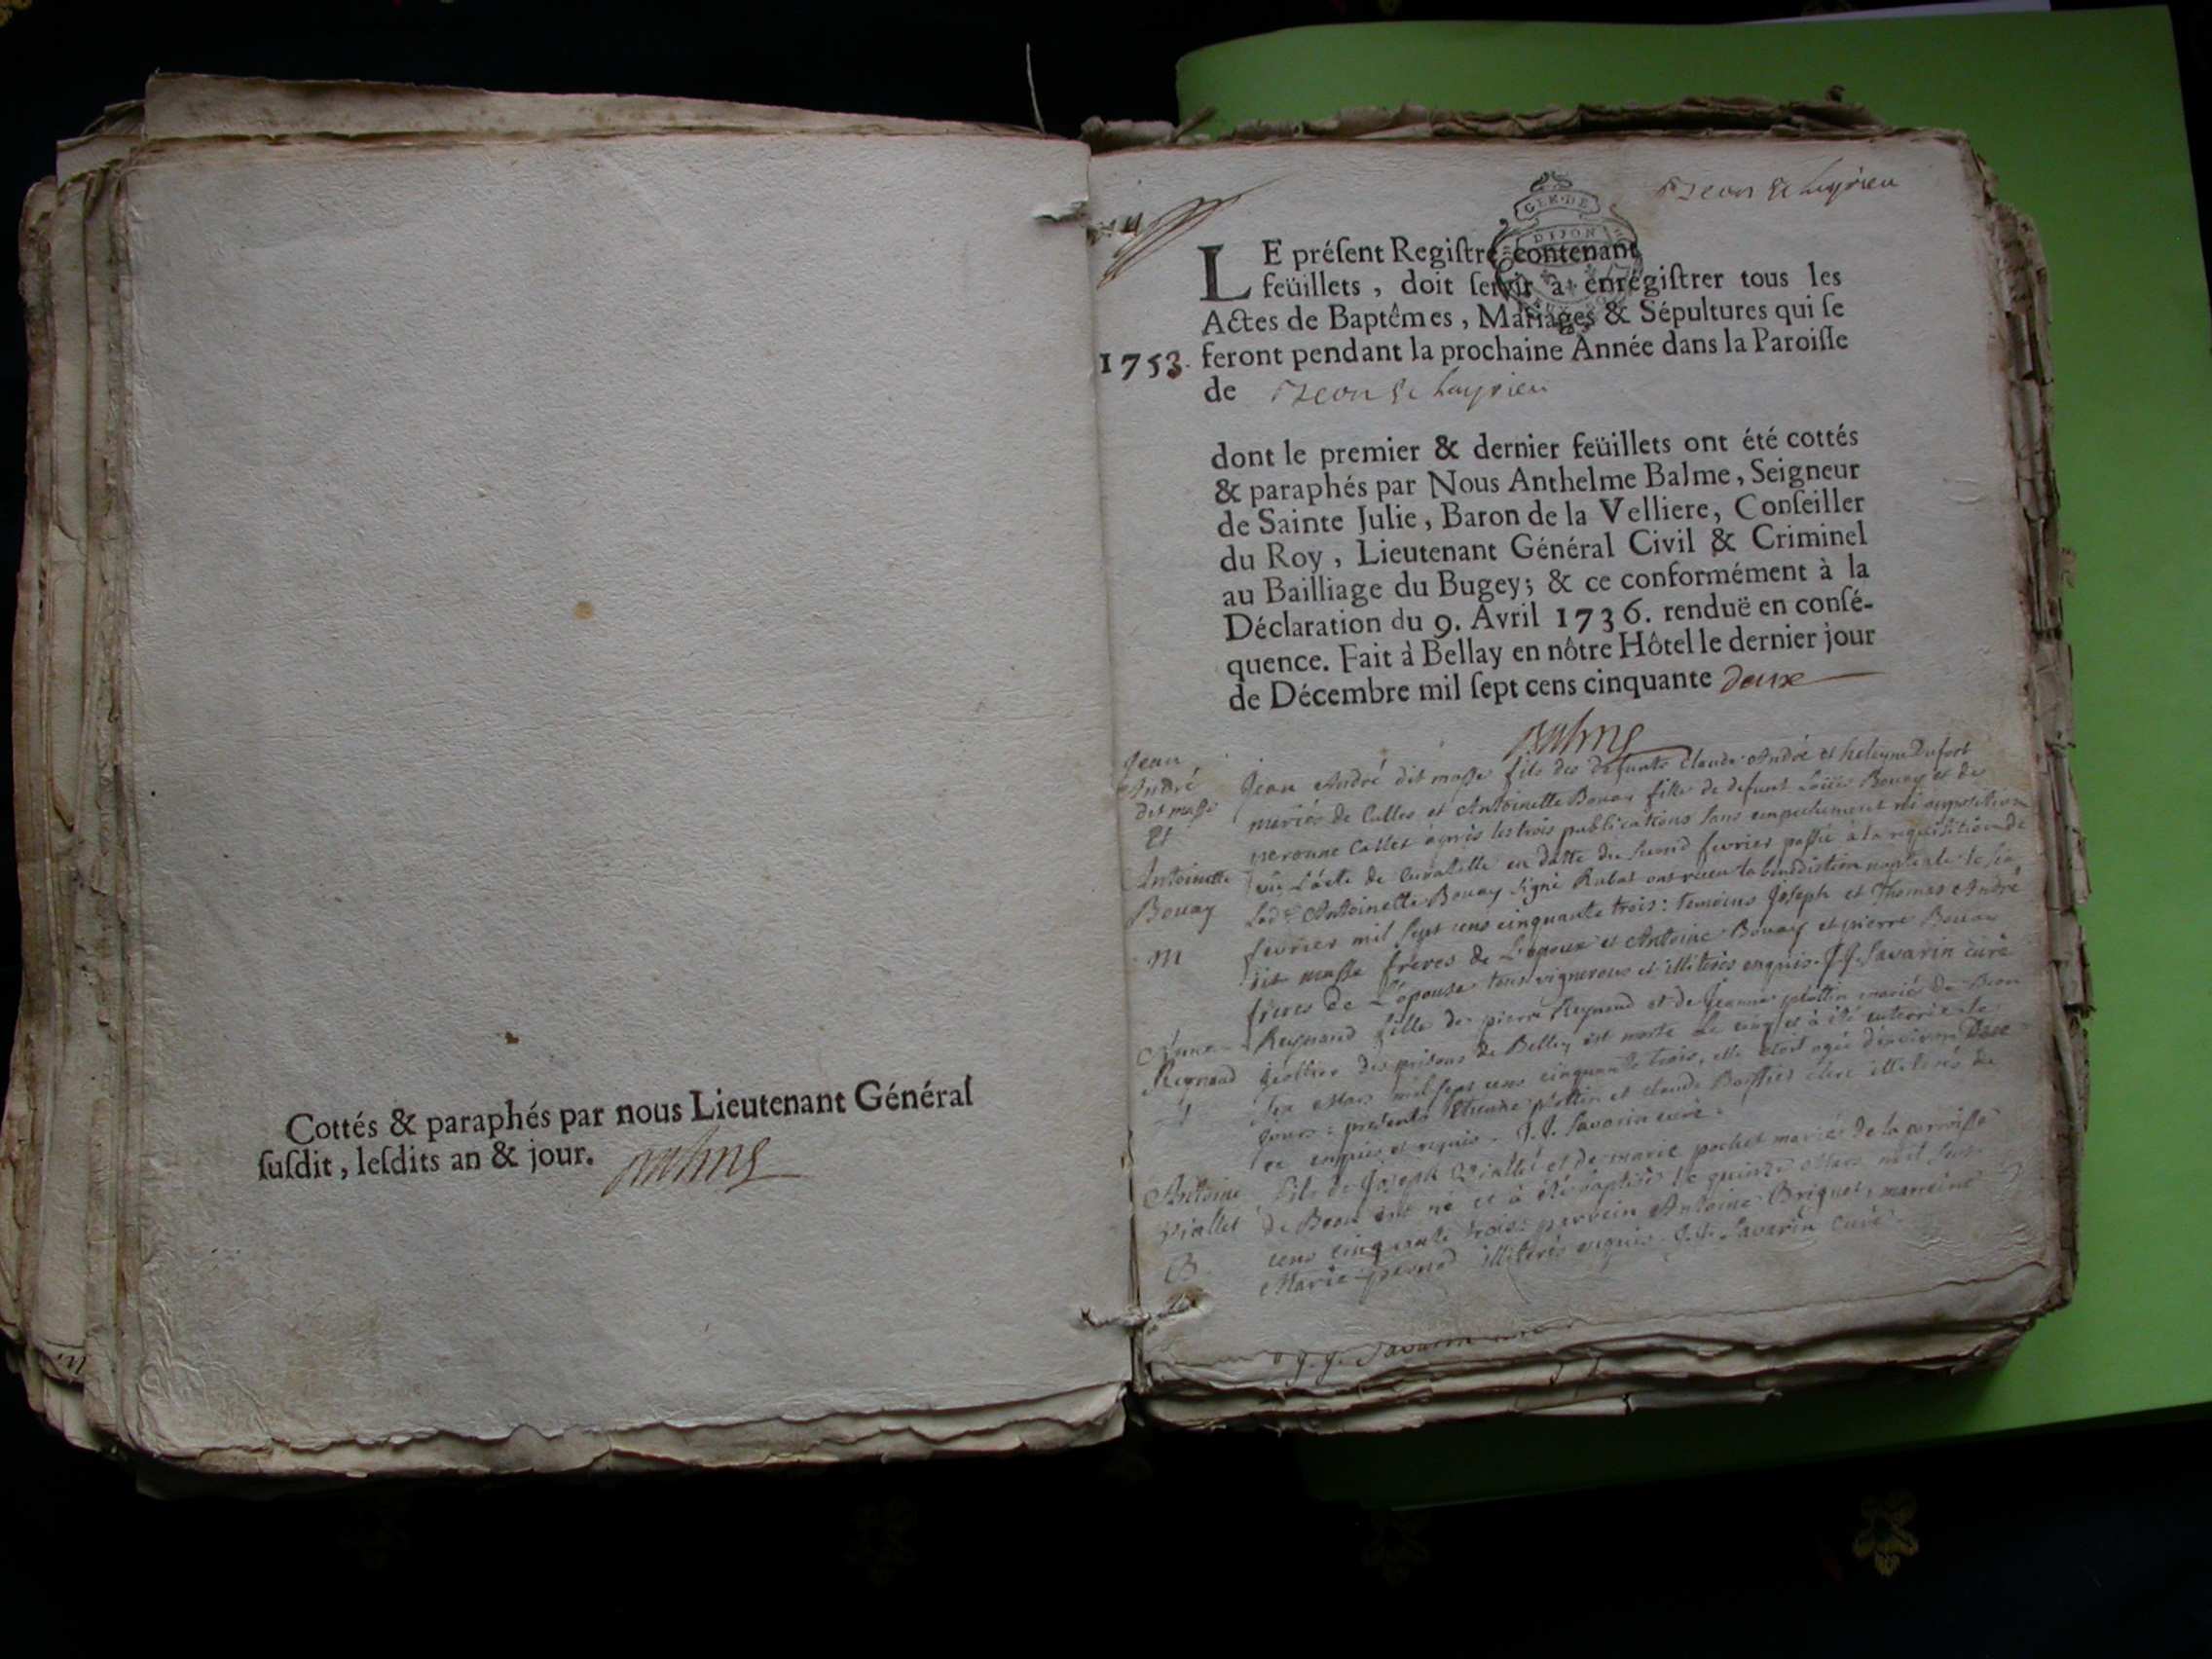 Cottés & paraphés par nous Lieutenant Général
ſuſdit, leſdits an & jour.
Beon & Luyrieu
GEN. DE
DIJON
LE préſent Regiſtre contenant
feüillets, doit ſervir à enrégiſtrer tous les
Actes de Baptêmes, Mariages & Sépultures qui ſe
1753. feront pendant la prochaine Année dans la Paroiſſe
de Beon & Luyrieu
dont le premier & dernier feüillets ont été cottés
& paraphés par Nous Anthelme Balme, Seigneur
de Sainte Julie, Baron de la Velliere, Conſeiller
du Roy, Lieutenant Général Civil & Criminel
au Bailliage du Bugey; & ce conformément à la
Déclaration du 9. Avril 1736. renduë en conſé-
quence. Fait à Bellay en nôtre Hôtel le dernier jour
de Décembre mil ſept cens cinquante deux
Balme
Jean
André
dit masse
Et
Antoinette
Bouay
M
Jean André dit masse fils des defunts Claude André et heleyne Dufort
mariés de Culles et Antoinette Bouay fille de defunt Bouay et de
peronne Callet après les trois publications sans empechement ni opposition
vû l'acte de Curatelle en datte du second fevrier passé à la requisition de
lad. Antoinette Bouay signé Rubat ont reçu la benediction nuptiale le
fevrier mil sept cens cinquante trois: temoins Joseph et Thomas André
dit masse freres de l'epoux et Antoine Bouay et pierre Bouay
freres de l'epouse tous vignerons et illiterés enquis. J. J. Savarin curé
Reynaud
Reynaud fille de pierre Reynaud et de Jeanne plottin mariés de Beon
geollier des prisons de Belley est morte le cinq et à été enterrée le
six Mars mil sept cens cinquante trois, elle etoit agée d'environ
jours: presents Etienne plottin et Claude illiterés de
ce enquis et requis. J. J. Savarin curé.
Antoine
Viallet
B
fils de Joseph Viallet et de marie pochet mariés de la parroisse
de Beon est né et à été baptisé le quinze Mars mil sept
cens cinquante trois: parrein Antoine Briquet, marreine
Marie illiterés enquis. J. J. Savarin curé.
J. J. Savarin curé